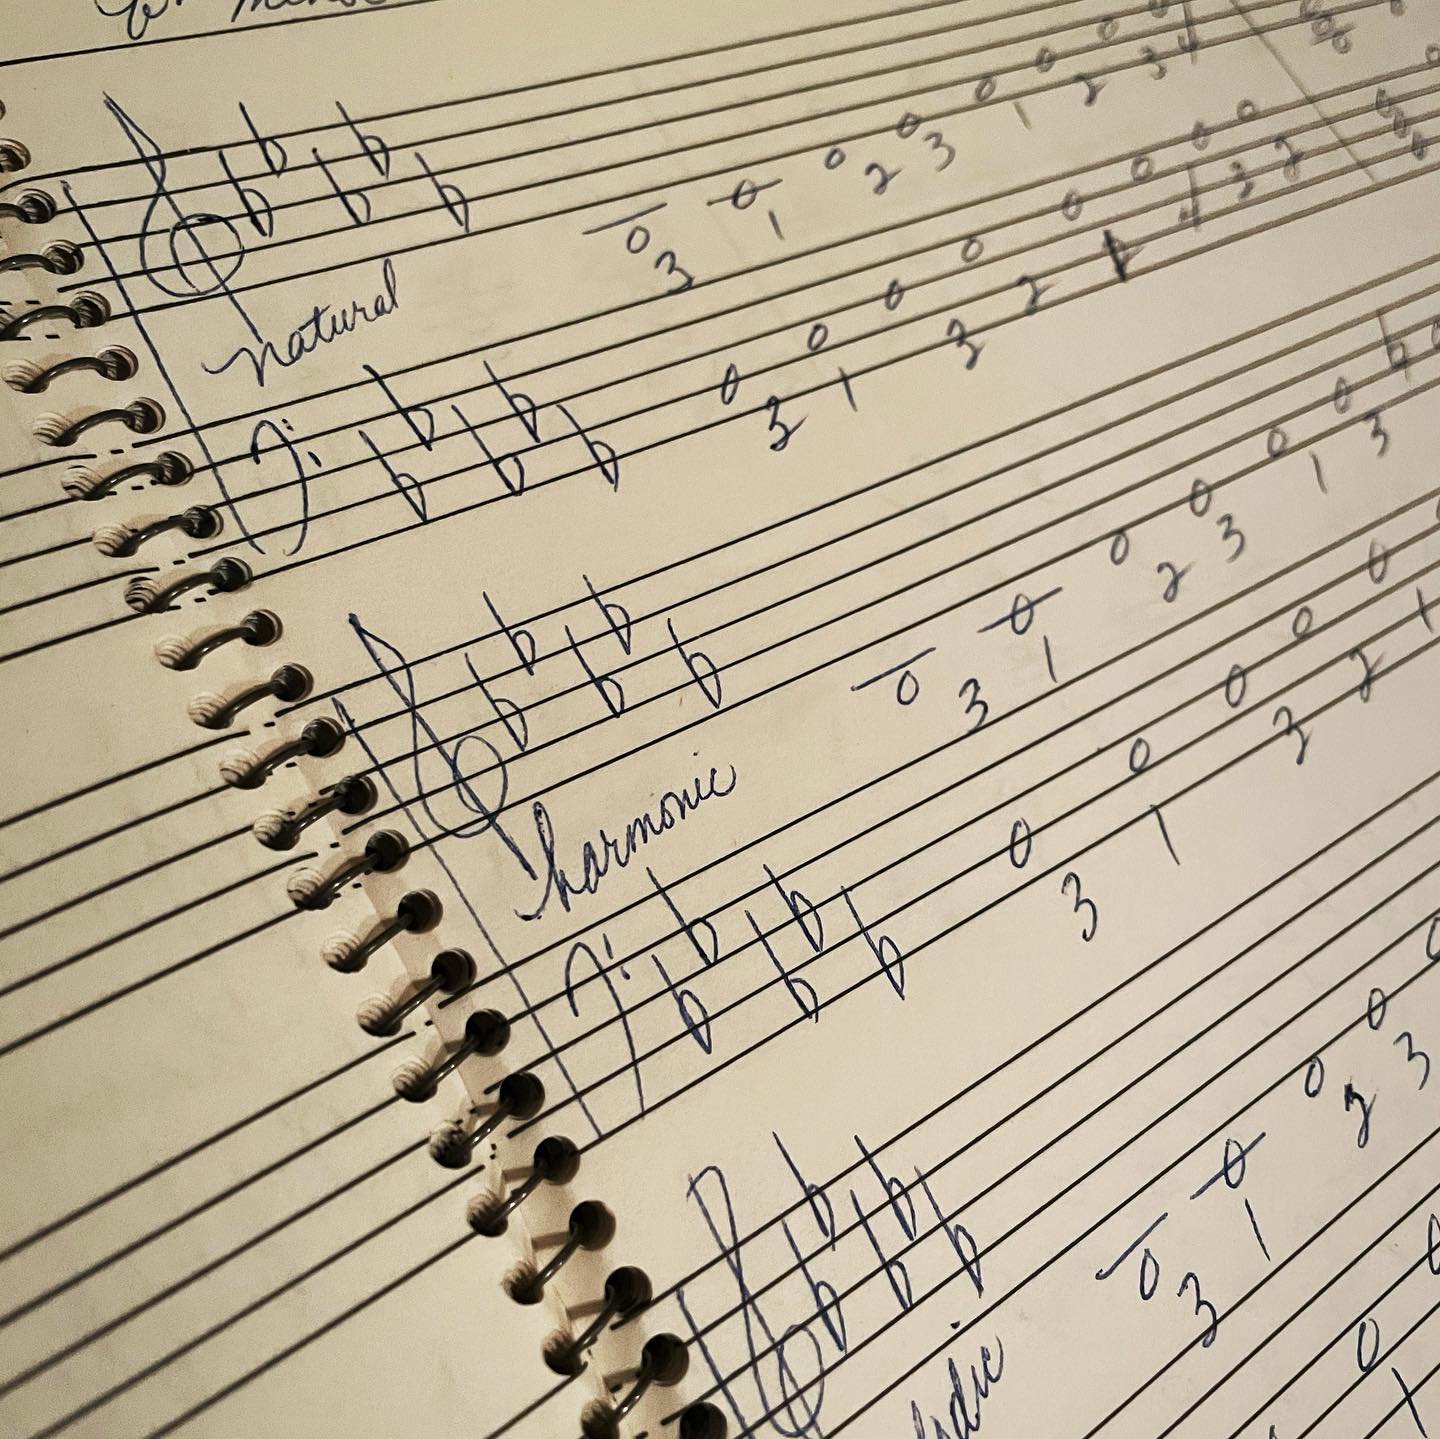 3 1 2 3 1 2 3 4
natural
3 1 3 2 1 4 3 2
3 1 2 3 1 3
harmonic
3 1 3 2 1
3 1 2 3
odic
1